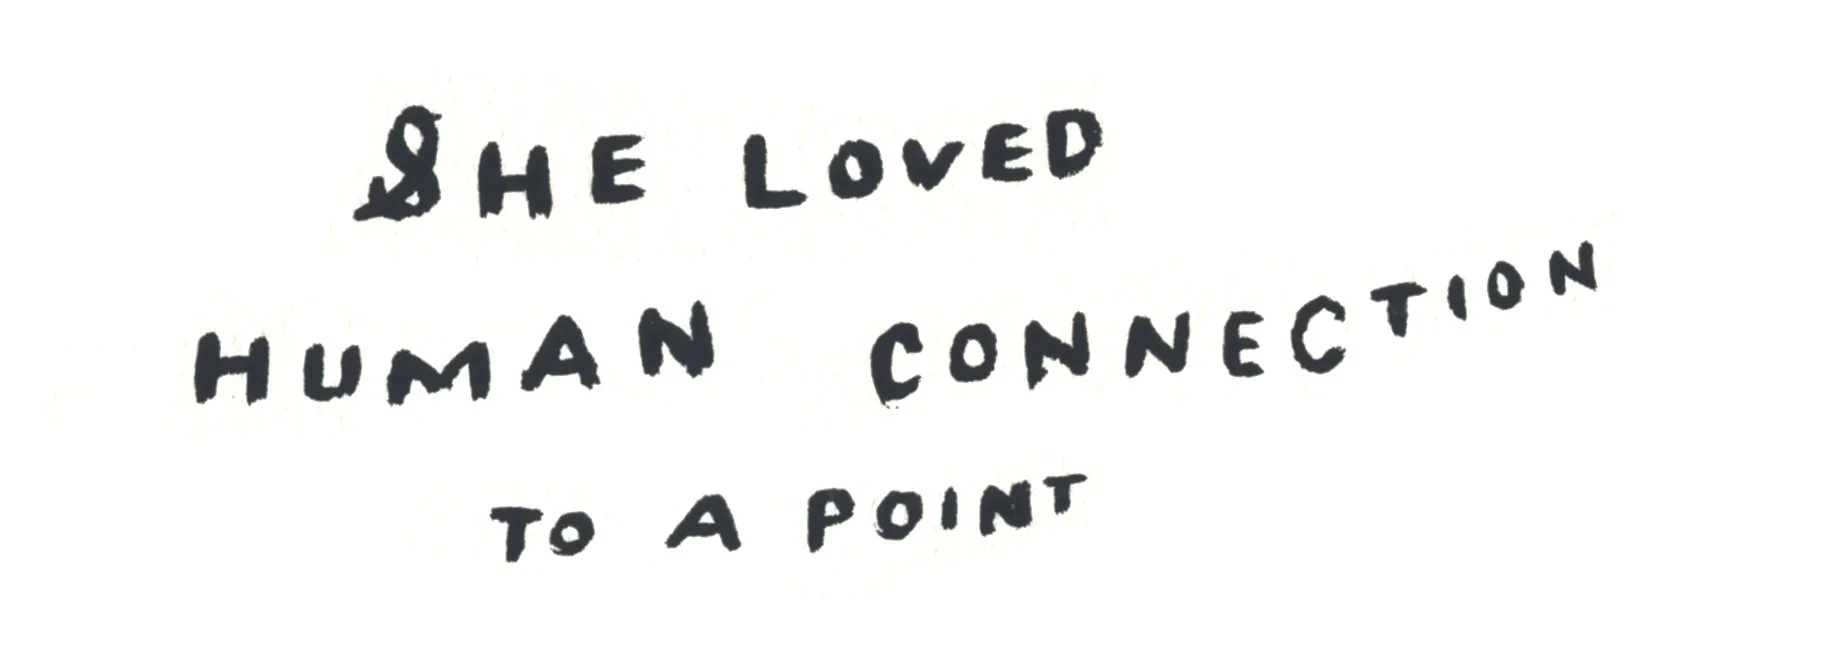 SHE LOVED
HUMAN CONNECTION
TO A POINT